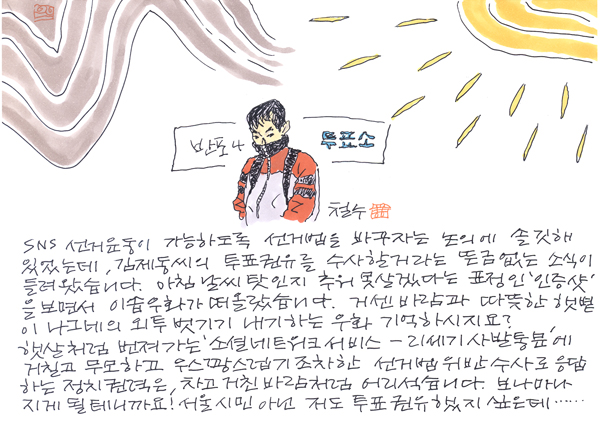 반포4 투표소
철수
SNS 선거운동이 가능하도록 선거법을 바꾸자는 논의에 솔깃해
있었는데, 김제동씨의 투표권유를 수사할거라는 뜬금없는 소식이
들려왔습니다. 아침 날씨 탓인지 추워 못살겠다는 표정인 '인증샷'
을 보면서 이솝우화가 떠올랐습니다. 거센 바람과 따뜻한 햇볕
이 나그네의 외투 벗기기 내기하는 우화 기억하시지요?
햇살처럼 번져가는 '소셜네트워크서비스 - 21세기 사발통문'에
거칠고 무모하고 우스꽝스럽기조차한 선거법위반수사로 응답
하는 정치권력은, 차고 거친 바람처럼 어리석습니다. 보나마나
지게 될테니까요! 서울시민 아닌 저도 투표권유했지 싶은데……